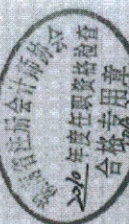 海南省注册会计师协会
2010年度任职资格检查
合格专用章